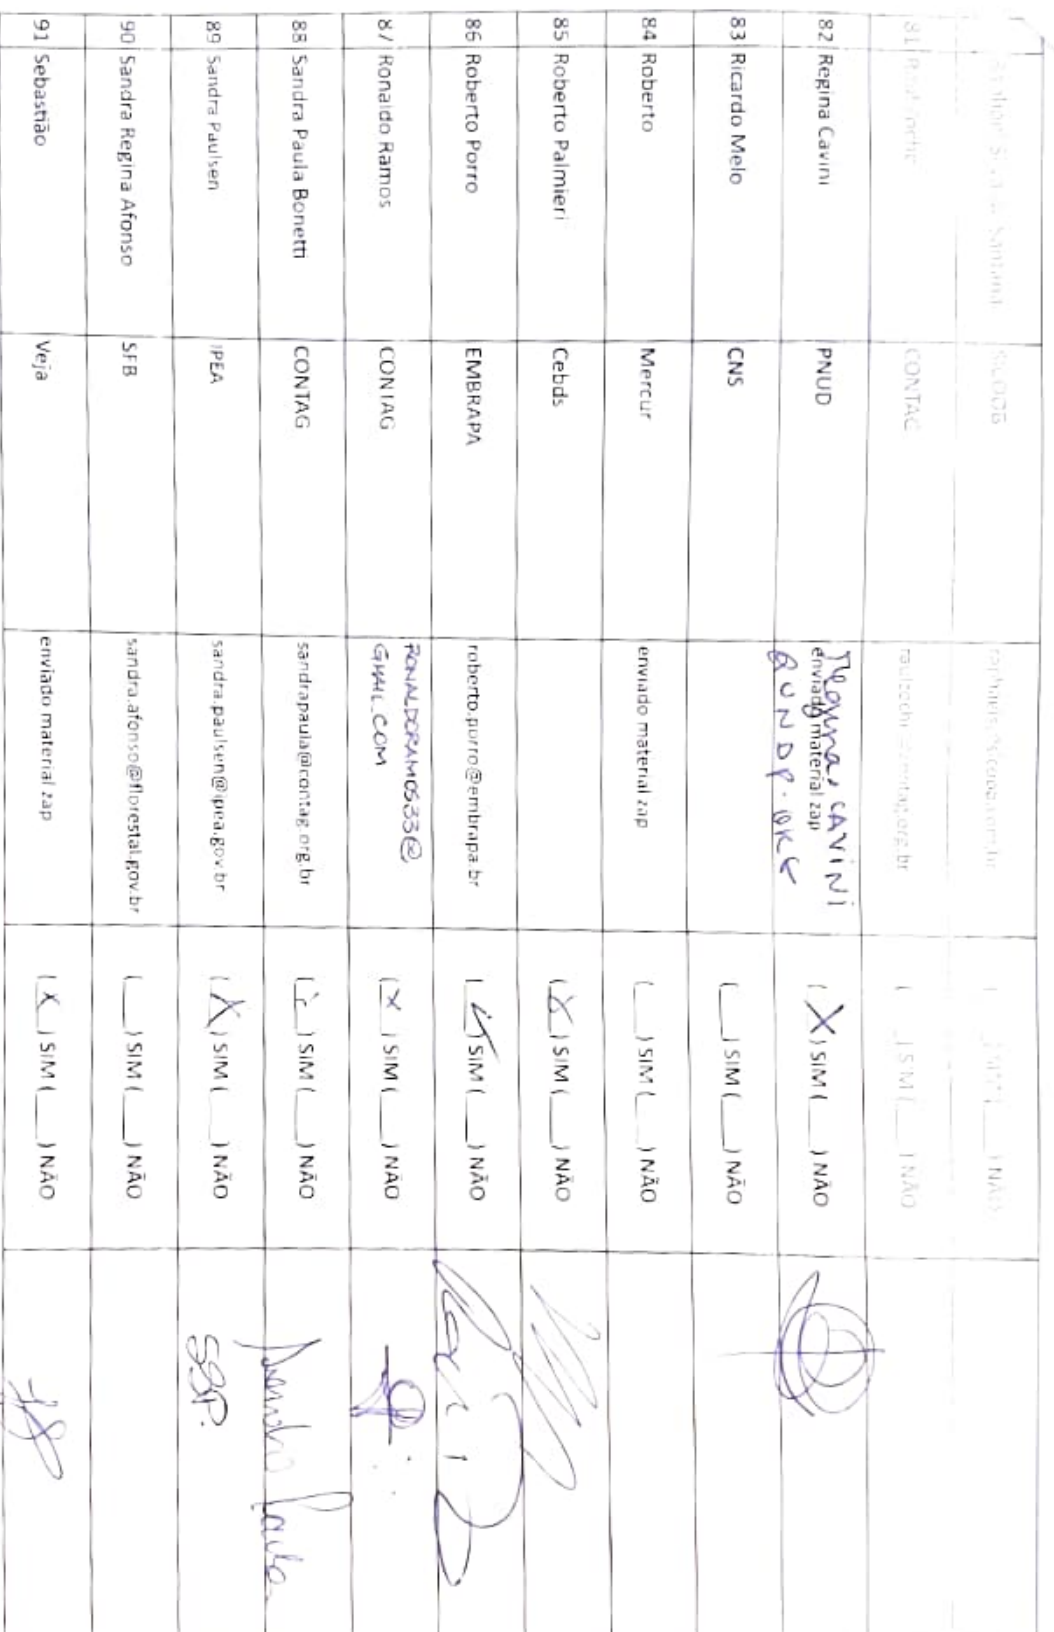 SIM ( ___ ) NÃO
81 CONTAG ( ___ ) SIM ( ___ ) NÃO
82 Regina Cavini PNUD enviado material zap ( X ) SIM ( ___ ) NÃO
Regina.CAVINI
@UNDP.ORG
83 Ricardo Melo CNS ( ___ ) SIM ( ___ ) NÃO
84 Roberto Mercur enviado material zap ( ___ ) SIM ( ___ ) NÃO
85 Roberto Palmieri Cebds ( X ) SIM ( ___ ) NÃO
86 Roberto Porro EMBRAPA roberto.porro@embrapa.br ( ) SIM ( ___ ) NÃO
87 Ronaldo Ramos CONTAG ( X ) SIM ( ___ ) NÃO
RONALDORAMOS33@
GMAIL.COM
88 Sandra Paula Bonetti CONTAG sandrapaula@contag.org.br ( ) SIM ( ___ ) NÃO Sandra Paula
89 Sandra Paulsen IPEA sandra.paulsen@ipea.gov.br ( X ) SIM ( ___ ) NÃO SSP.
90 Sandra Regina Afonso SFB sandra.afonso@florestal.gov.br ( ___ ) SIM ( ___ ) NÃO
91 Sebastião Veja enviado material zap ( X ) SIM ( ___ ) NÃO